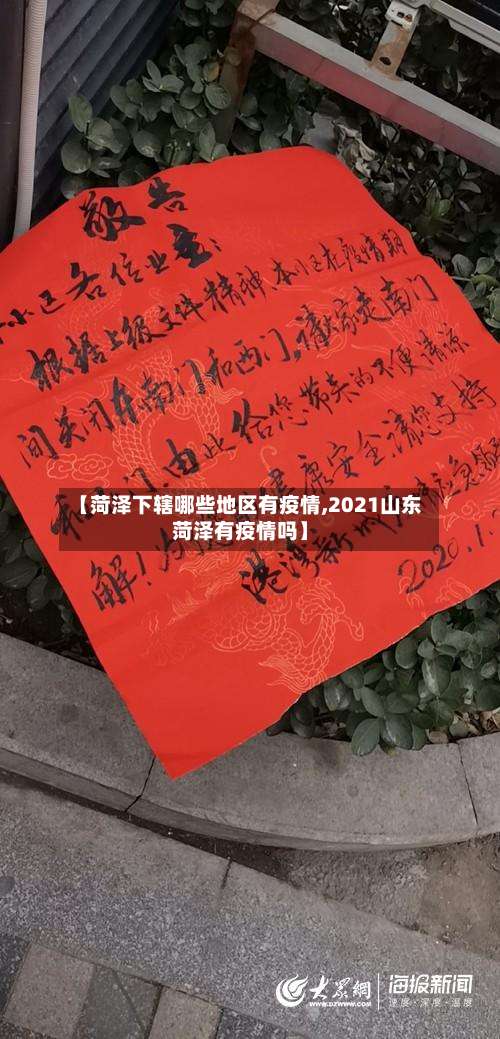 敬告
小区各位业主:
根据上级文件精神,本小区在疫情期
间关闭东南门和西门,请大家走南门
和 门.由此给您带来的不便请谅
解!为 健康安全请您支持
港湾新
2020.1.
【菏泽下辖哪些地区有疫情,2021山东
菏泽有疫情吗】
大众网
WWW.DZWWW.COM
海报新闻
速度·深度·温度